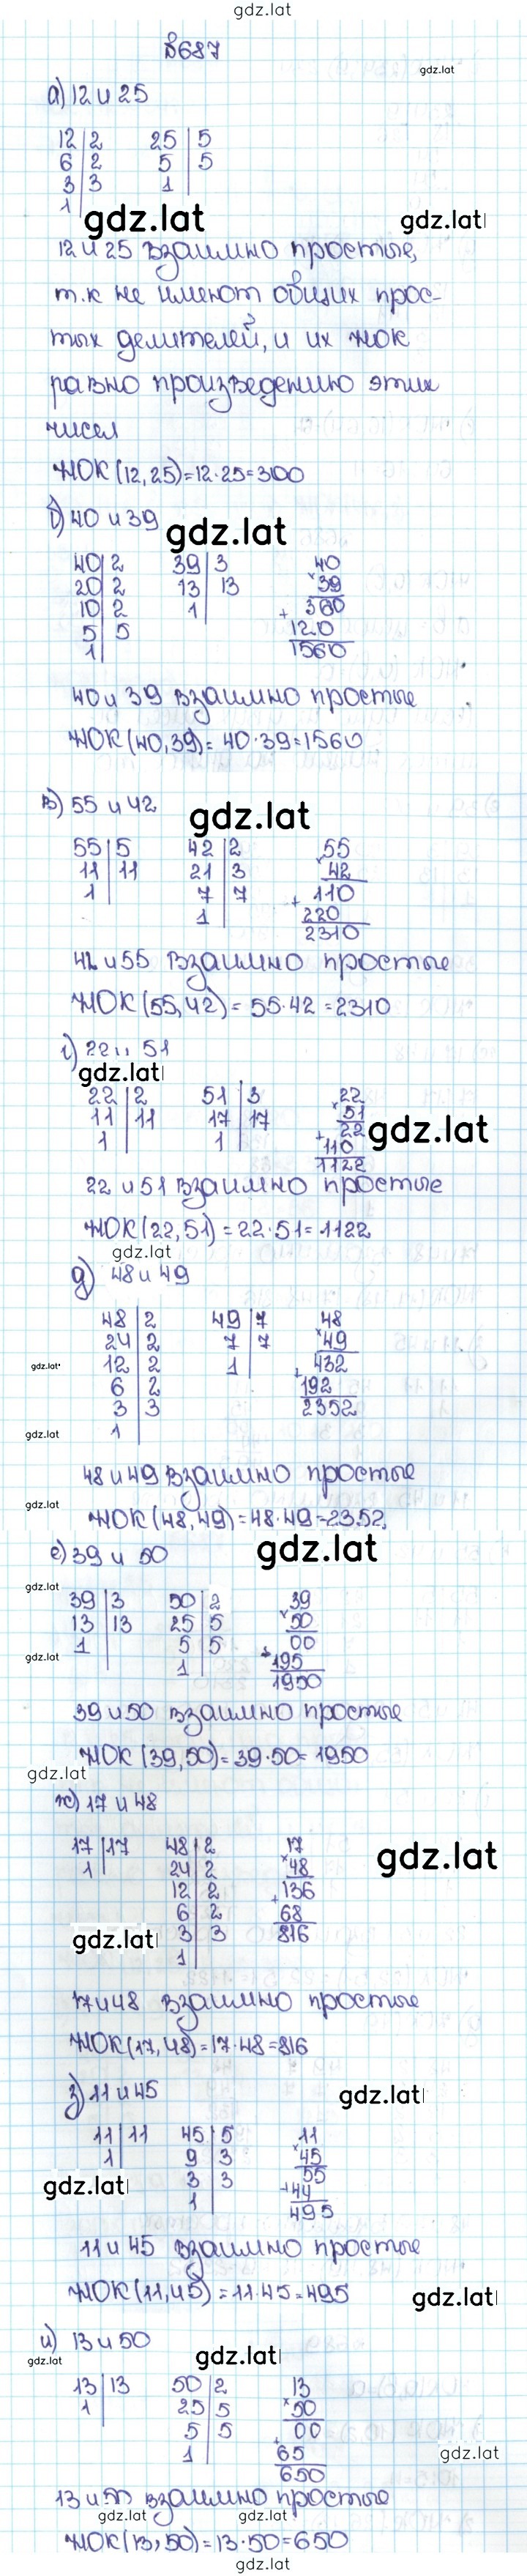 gdz.lat
№687
gdz.lat
а) 12 и 25
12|2 25|5
6|2 5|5
3|3 1|
1|
gdz.lat gdz.lat
12 и 25 взаимно простые,
т.к не имеют общих прос-
тых делителей, и их НОК
равно произведению этих
чисел
НОК(12,25)=12·25=300
б) 40 и 39
gdz.lat
40|2 39|3 40
20|2 13|13 ×39
10|2 1| + 360
5|5 120
1| 1560
40 и 39 взаимно простые
НОК(40,39)= 40·39=1560
в) 55 и 42
gdz.lat
55|5 42|2 55
11|11 21|3 ×42
1| 7|7 + 110
1| 220
2310
42 и 55 взаимно простые
НОК(55,42)= 55·42=2310
г) 22 и 51
gdz.lat
22|2 51|3 22
11|11 17|17 ×51
1| 1| + 22
gdz.lat
110
1122
22 и 51 взаимно простые
НОК(22,51)=22·51=1122
gdz.lat
д) 48 и 49
48|2 49|7 48
24|2 7|7 ×49
gdz.lat 12|2 1| + 432
6|2 192
3|3 2352
gdz.lat 1|
48 и 49 взаимно простые
gdz.lat
НОК(48,49)=48·49=2352
е) 39 и 50
gdz.lat
gdz.lat
39|3 50|2 39
13|13 25|5 ×50
1| 5|5 00
gdz.lat 1| + 195
1950
39 и 50 взаимно простые
НОК(39,50)=39·50=1950
gdz.lat
ж) 17 и 48
17|17 48|2 17
1| 24|2 ×48
gdz.lat
12|2 + 136
6|2 68
gdz.lat 3|3 816
1|
17 и 48 взаимно простые
НОК(17,48)=17·48=816
з) 11 и 45
gdz.lat
11|11 45|5 11
1| 9|3 ×45
gdz.lat 3|3 55
1| +44
495
11 и 45 взаимно простые
НОК(11,45)=11·45=495
gdz.lat
и) 13 и 50
gdz.lat gdz.lat
13|13 50|2 13
1| 25|5 ×50
5|5 + 00
1| 65
gdz.lat
650
13 и 50 взаимно простые
gdz.lat gdz.lat
НОК(13,50)=13·50=650
gdz.lat